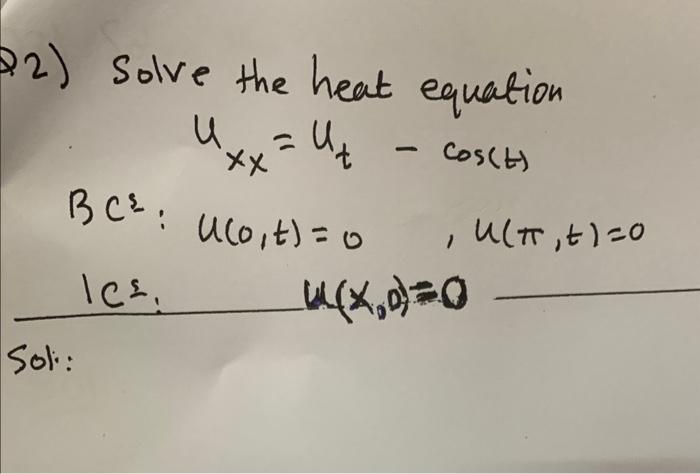 Q2) Solve the heat equation
u_xx = u_t - cos(t)
BCs: u(0,t)=0 , u(π,t)=0
ICs: u(x,0)=0
Sol: